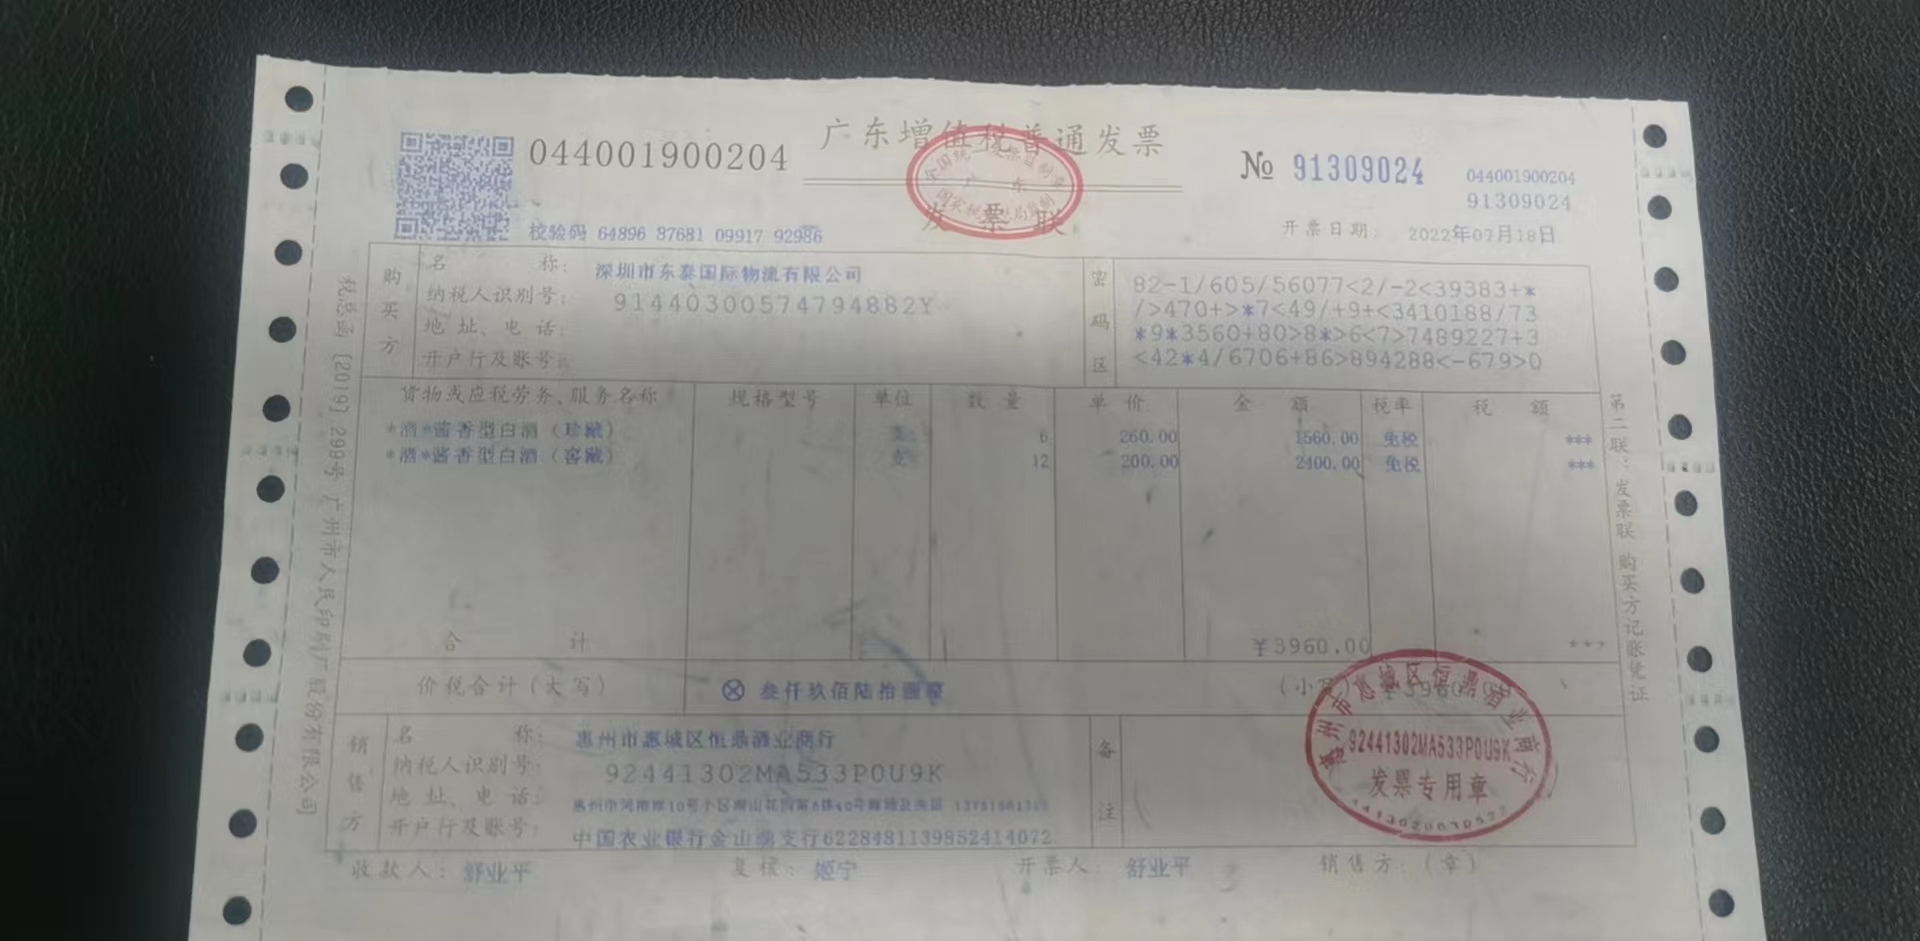 广东增值税普通发票
044001900204
№ 91309024
044001900204
91309024
全国统一发票监制章
广东
国家税务总局监制
发票联
校验码 64896 87681 09917 92986
开票日期: 2022年07月18日
税总函〔2019〕299号 广州市人民印刷厂股份有限公司
购买方
名称: 深圳市东泰国际物流有限公司
纳税人识别号: 91440300574794882Y
地址、电话:
开户行及账号:
密码区
82-1/605/56077<2/-2<39383+*
/>470+>*7<49/+9+<3410188/73
*9*3560+80>8*>6<7>7489227+3
<42*4/6706+86>894288<-679>0
货物或应税劳务、服务名称 规格型号 单位 数量 单价 金额 税率 税额
*酒*酱香型白酒(珍藏) 支 6 260.00 1560.00 免税 ***
*酒*酱香型白酒(窖藏) 支 12 200.00 2400.00 免税 ***
合计 ¥3960.00 ***
价税合计(大写) ⊗ 叁仟玖佰陆拾圆整 (小写) ¥3960.00
第二联:发票联 购买方记账凭证
销售方
名称: 惠州市惠城区恒鼎酒业商行
纳税人识别号: 92441302MA533P0U9K
地址、电话: 惠州市河南岸10号小区
开户行及账号: 中国农业银行金山湖支行6228481139852414072
备注
惠州市惠城区恒鼎酒业商行
92441302MA533P0U9K
发票专用章
收款人: 舒业平 复核: 姬宁 开票人: 舒业平 销售方:(章)